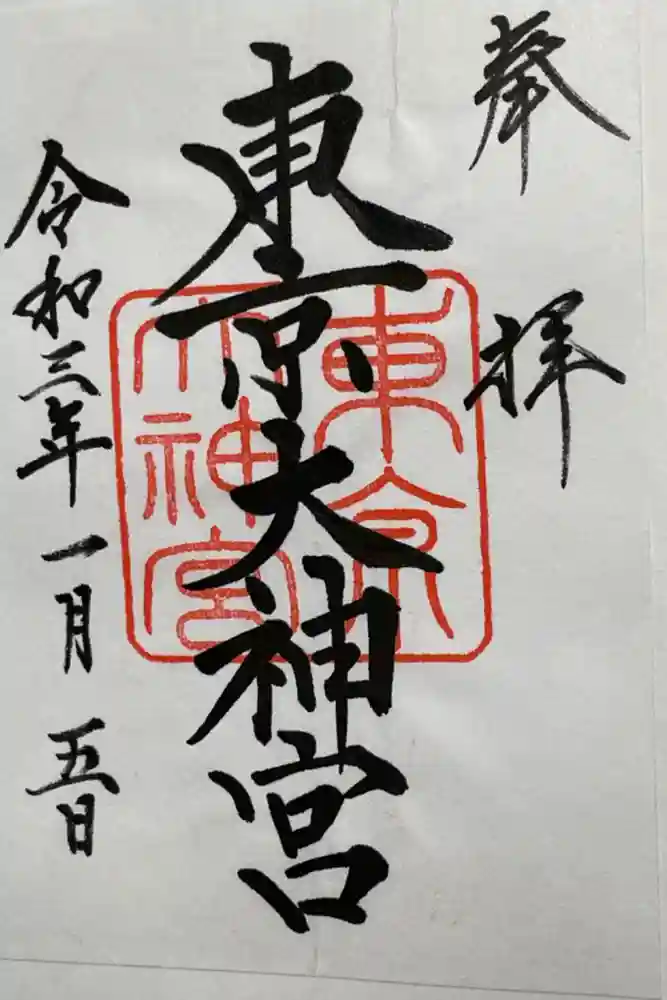 奉拝
東京大神宮
東京
大神宮
令和三年一月五日